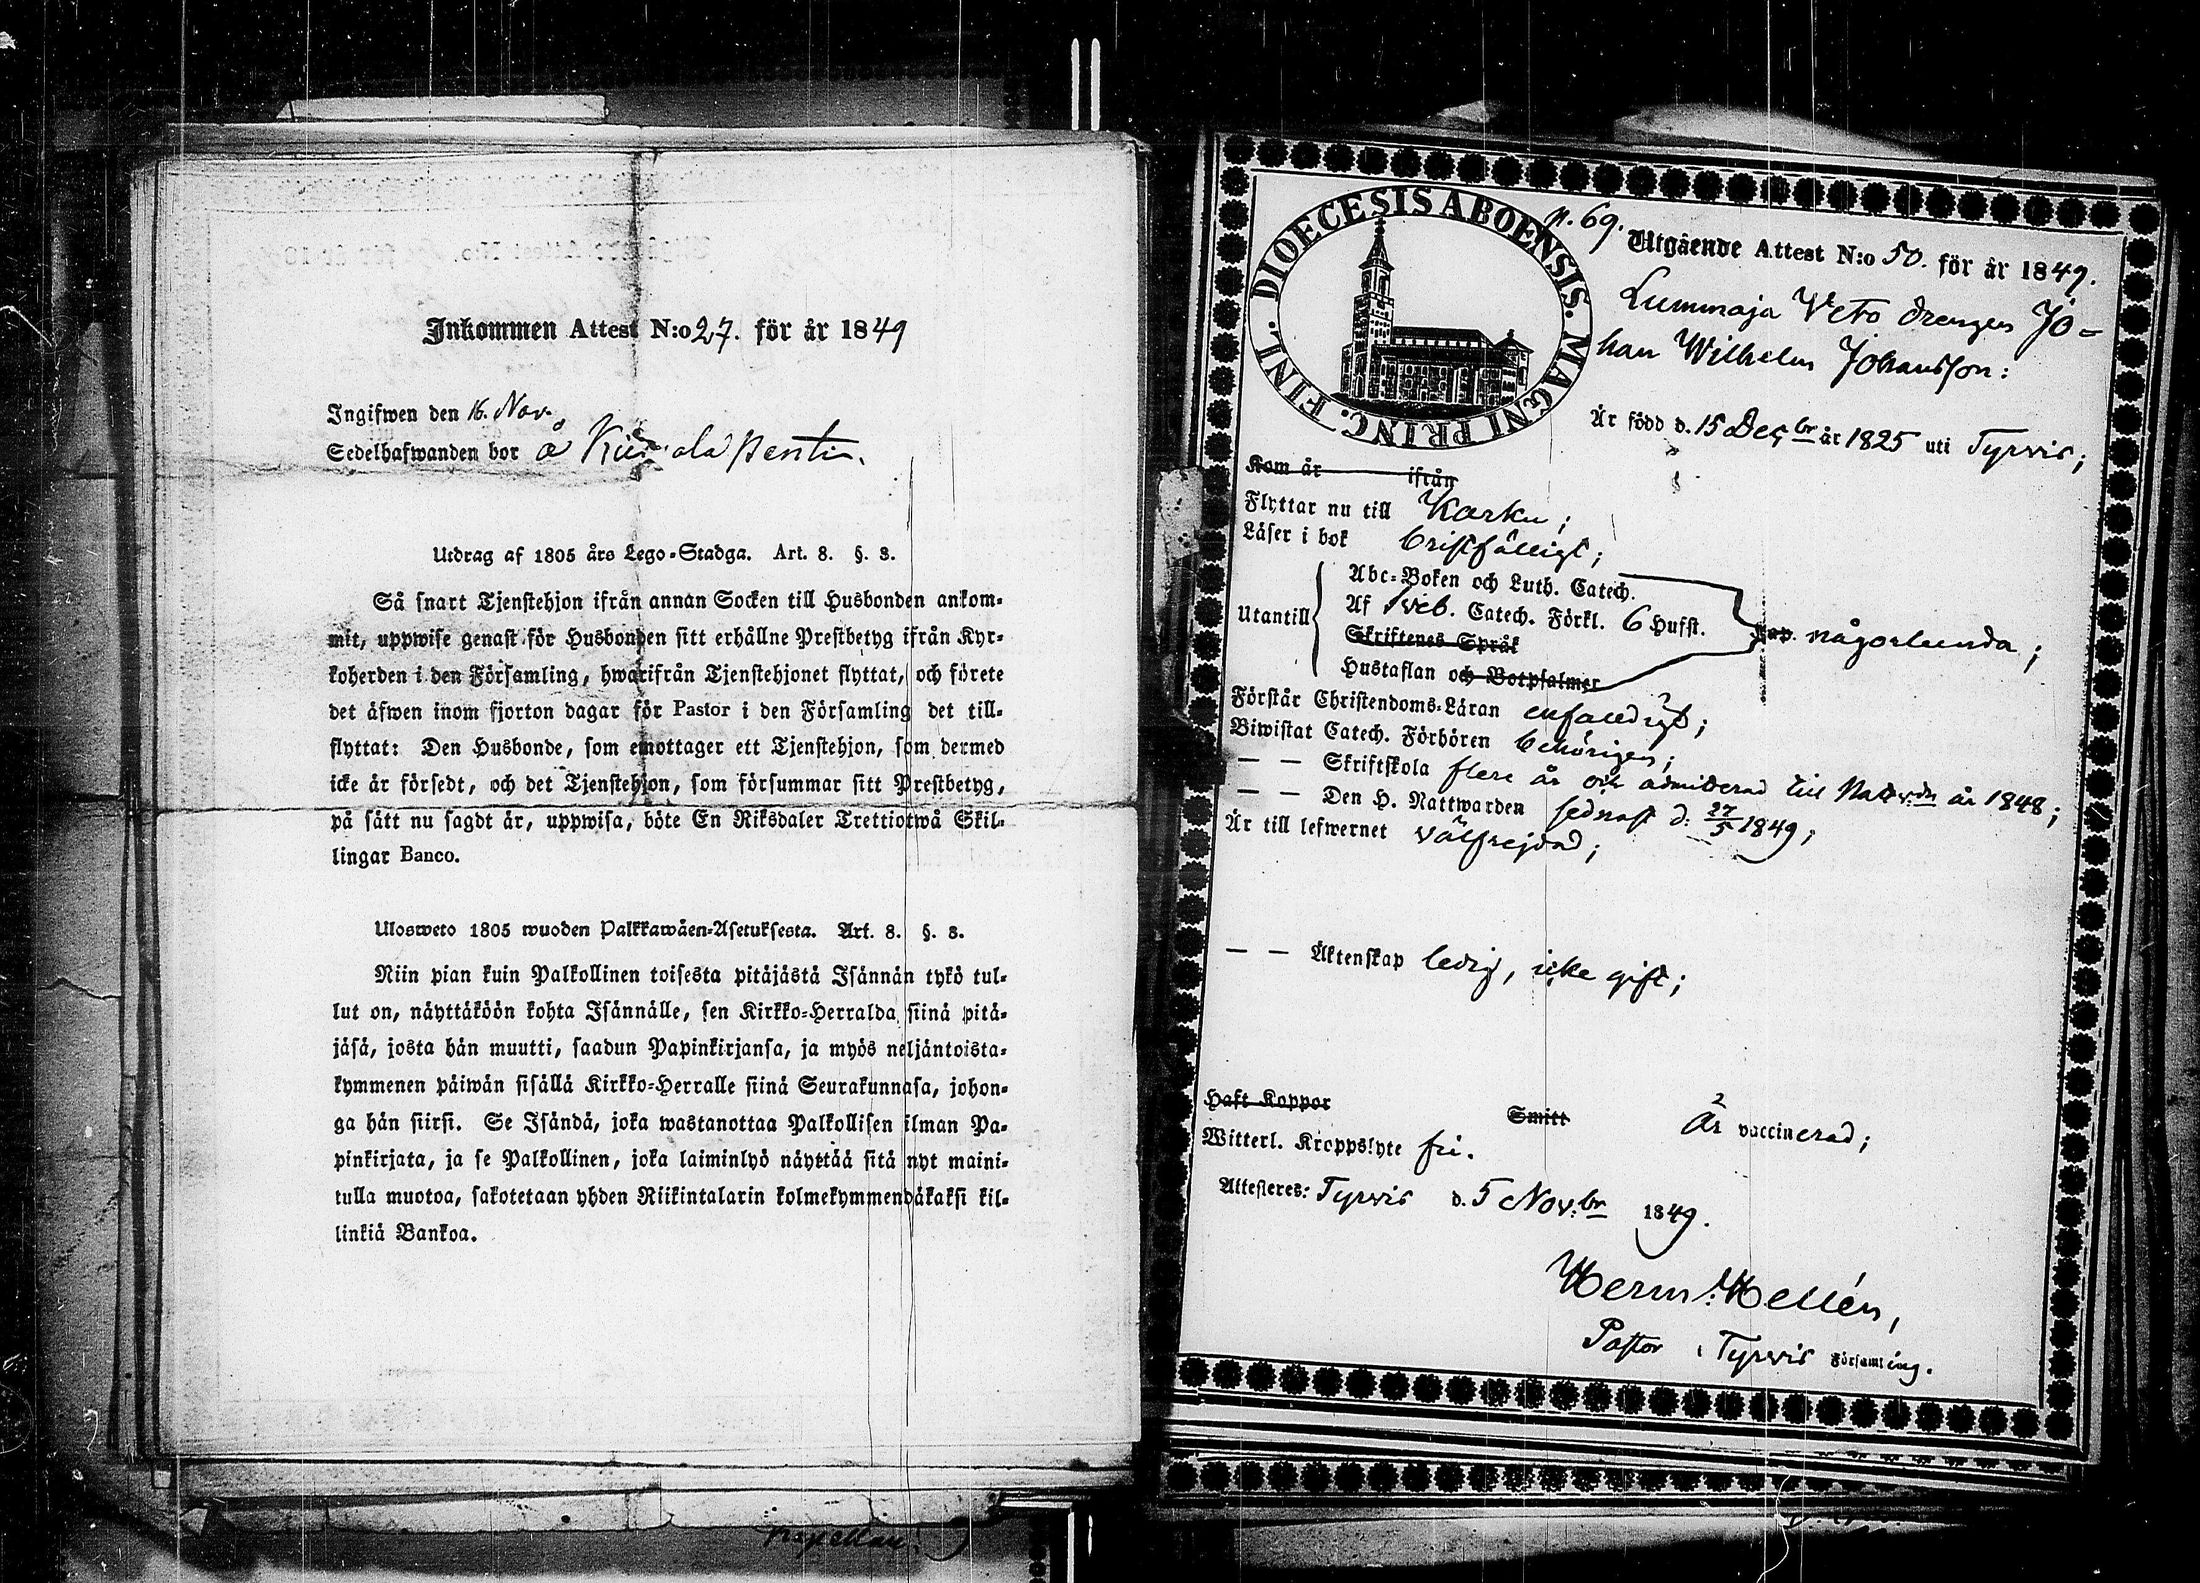 Inkommen Attest N:o 27. för år 1849
Ingifwen den 16. Nov.
Sedelhafwanden bor å
Utdrag af 1805 års Lego-Stadga. Art. 8. §. 8.
Så snart Tjenstehjon ifrån annan Socken till Husbonden ankom-
mit, uppwise genast för Husbonden sitt erhållne Prestbetyg ifrån Kyr-
koherden i den Församling, hwarifrån Tjenstehjonet flyttat, och förete
det äfwen inom fjorton dagar för Pastor i den Församling det till-
flyttat: Den Husbonde, som emottager ett Tjenstehjon, som dermed
icke är försedt, och det Tjenstehjon, som försummar sitt Prestbetyg,
på sätt nu sagdt är, uppwisa, böte En Riksdaler Trettiotwå Skil-
lingar Banco.
Ulosweto 1805 wuoden Palkkawäen-Asetuksesta. Art. 8. §. 8.
Niin pian kuin Palkollinen toisesta pitäjästä Isännän tykö tul-
lut on, näyttäköön kohta Isännälle, sen Kirkko-Herralda siinä pitä-
jäsä, josta hän muutti, saadun Papinkirjansa, ja myös neljäntoista-
kymmenen päiwän sisällä Kirkko-Herralle siinä Seurakunnasa, johon-
ga hän siirsi. Se Isändä, joka wastanottaa Palkollisen ilman Pa-
pinkirjata, ja se Palkollinen, joka laiminlyö näyttää sitä nyt maini-
tulla muotoa, sakotetaan yhden Riikintalarin kolmekymmendäkaksi kil-
linkiä Bankoa.
Kapellan.
DIOECESIS ABOENSIS. MAGNI PRINC. FINL.
N. 69.
Utgående Attest N:o 50. för år 1849.
Lummaja Veto drengen Jo-
han Wilhelm Johansson:
Är född d. 15 Dec:br år 1825 uti Tyrvis;
Kom år ifrån
Flyttar nu till Karku;
Läser i bok bristfälligt;
Utantill
Abc-Boken och Luth. Catech.
Af Sveb. Catech. Förkl. 6 Hufst.
Skriftenes Språk
Hustaflan och Botpsalmer
Kap. någorlunda;
Förstår Christendoms-Läran enfaldigt;
Biwistat Catech. Förhören behörigen;
— — Skriftskola flere år och admitterad till Nattv:den år 1848;
— — Den H. Nattwarden sednast d. 27/5 1849;
Är till lefwernet välfrejdad;
— — Äktenskap ledig, icke gift;
Haft Koppor Smitt Är vaccinerad;
Witterl. Kroppslyte fri.
Attesteres: Tyrvis d. 5 Nov:br 1849.
Herm: Hellén,
Pastor i Tyrvis Församling.